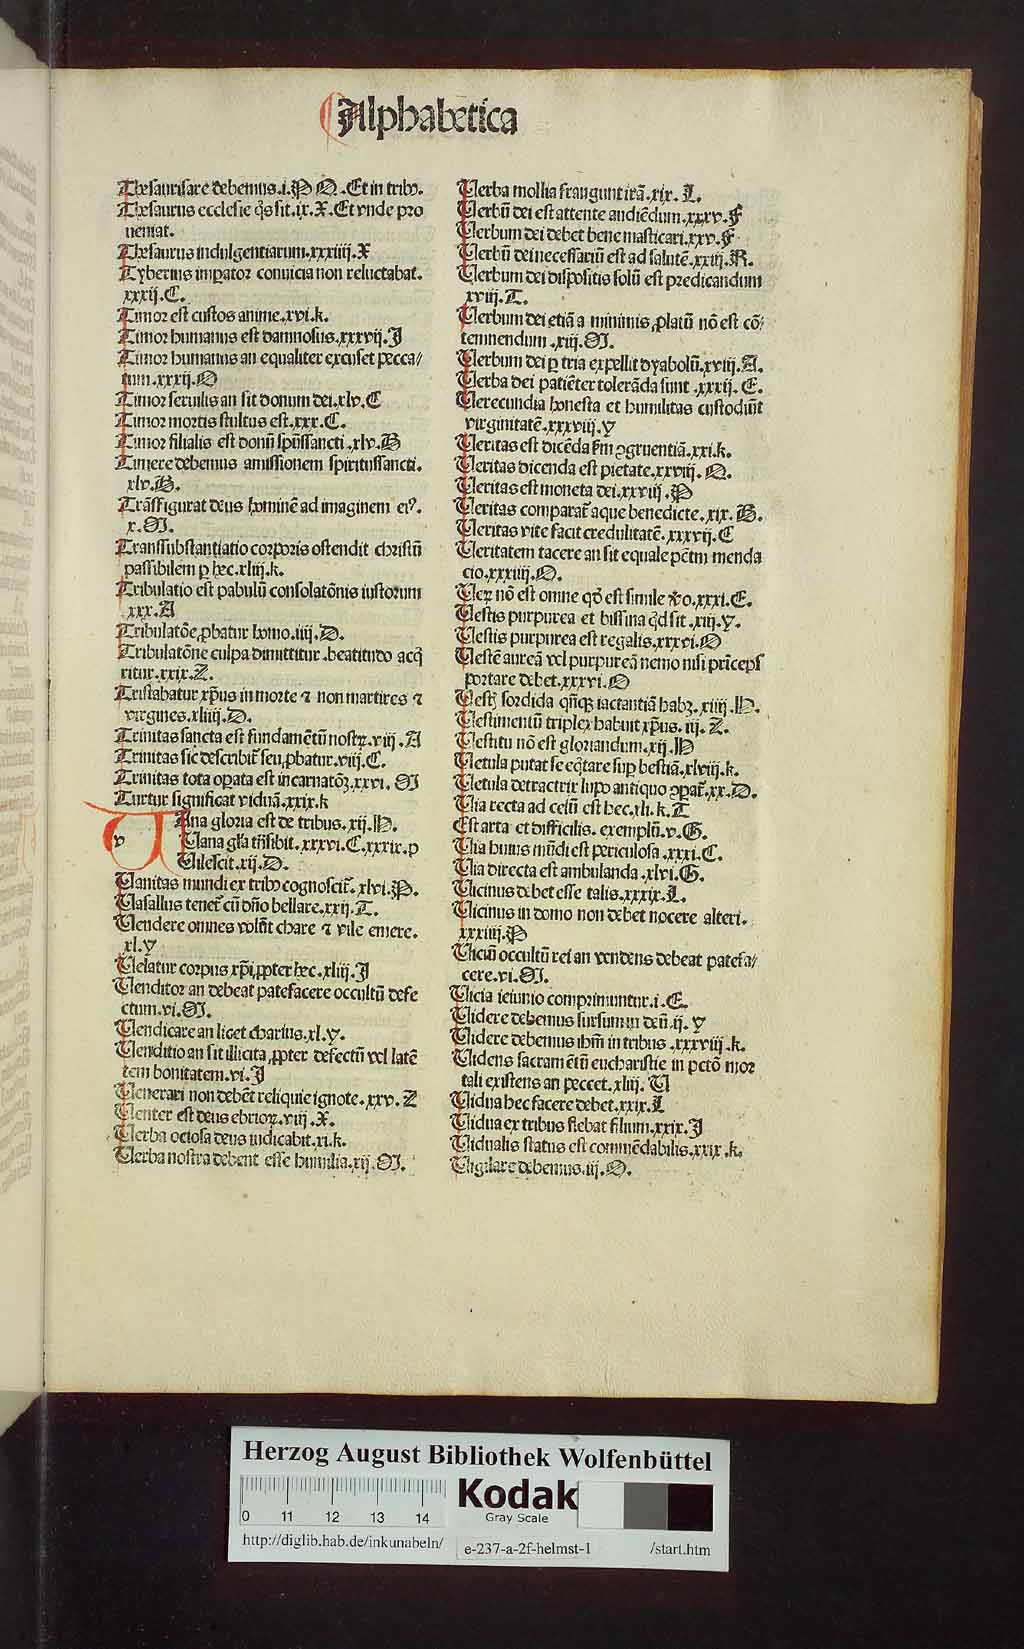 Alphabetica
Thesaurisare debemus.i.P Q.Et in trib9.
Thesaurus ecclesie q̇s sit.ix.X.Et vnde pro
ueniat.
Thesaurus indulgentiarum.xxxiiij.X
Tyberius imꝑator conuicia non reluctabat.
xxxij.C.
Timor est custos anime.xvi.k.
Timor humanus est damnosus.xxxvij.J
Timor humanus an equaliter excuset pecca/
tum.xxxij.O
Timor seruilis an sit donum dei.xlv.C
Timor mortis stultus est.xxx.C.
Timor filialis est donū spūssancti.xlv.B
Timere debemus amissionem spiritussancti.
xlv.B.
Trāsfigurat deus hominē ad imaginem ei9.
x.M.
Transsubstantiatio corporis ostendit christū
passibilem ꝑ hec.xliij.k.
Tribulatio est pabulū consolatōnis iustorum
xxx.A
Tribulatōe ꝓbatur homo.iiij.D.
Tribulatōne culpa dimittitur.beatitudo acq̇
ritur.xxix.Z.
Tristabatur xp̄us in morte ⁊ non martires ⁊
virgines.xliiij.D.
Trinitas sancta est fundamētū nostrꝫ.viij.A
Trinitas sic describit̄ seu ꝓbatur.viij.C.
Trinitas tota oꝑata est incarnatōꝫ.xxvi.M
Turtur significat viduā.xxix.k
v
UAna gloria est de tribus.xij.N.
Uana gl̄a tn̄sibit.xxxvi.C.xxxix.p
Uilescit.xij.D.
Uanitas mundi ex trib9 cognoscit̄.xlvi.P.
Uasallus tenet̄ cū dn̄o bellare.xxij.T.
Uendere omnes volūt chare ⁊ vile emere.
xl.Y
Uelatur corpus xp̄i ꝓpter hec.xliij.J
Uenditor an debeat patefacere occultū defe
ctum.vi.M.
Uendicare an licet charius.xl.Y.
Uenditio an sit illicita ꝓpter defectū vel latē
tem bonitatem.vi.J
Uenerari non debēt reliquie ignote.xxv.Z
Uenter est deus ebrioꝝ.viij.X.
Uerba ociosa deus iudicabit.xi.k.
Uerba nostra debent esse humilia.xij.M.
Uerba mollia frangunt irā.xix.L.
Uerbū dei est attente audiēdum.xxxv.F
Uerbum dei debet bene masticari.xxv.F
Uerbū dei necessariū est ad salutē.xxiij.R.
Uerbum dei dispositis solū est predicandum
xviij.T.
Uerbum dei etiā a minimis ꝓlatū nō est cō/
temnendum.xiij.M.
Uerbum dei ꝑ tria expellit dyabolū.xviij.A.
Uerba dei patiēter tolerāda sunt.xxxij.C.
Uerecundia honesta et humilitas custodiūt
virginitatē.xxxviij.Y
Ueritas est dicēda ẜm ꝯgruentiā.xxi.k.
Ueritas dicenda est pietate.xxviij.Q.
Ueritas est moneta dei.xxviij.P
Ueritas comparat̄ aque benedicte.xix.B.
Ueritas vite facit credulitatē.xxxvij.C
Ueritatem tacere an sit equale pc̄tm menda
cio.xxxiiij.O.
Ueꝝ nō est omne qd̄ est simile v̓o.xxxi.E.
Uestis purpurea et bissina q̇d sit.xiij.Y.
Uestis purpurea est regalis.xxxvi.O
Uestē aureā vel purpureā nemo nisi prīceps
portare debet.xxxvi.O
Uestꝫ sordida qn̄qꝫ iactantiā habꝫ.xiiij.N.
Uestimentū triplex habuit xp̄us.iij.Z.
Uestitu nō est gloriandum.xij.N
Uetula putat se eq̇tare suꝑ bestiā.xlviij.k.
Uetula detractrix lupo antiquo ꝯꝑat̄.xx.D.
Uia recta ad celū est hec.xli.k.T
Est arta et difficilis.exemplū.v.G.
Uia huius mūdi est periculosa.xxxi.C.
Uia directa est ambulanda.xlvi.G.
Uicinus debet esse talis.xxxix.L.
Uicinus in domo non debet nocere alteri.
xxxiiij.P
Uiciū occultū rei an vendens debeat patefa/
cere.vi.M.
Uicia ieiunio comprimuntur.i.E.
Uidere debemus sursum in deū.ij.Y
Uidere debemus ibm̄ in tribus.xxxviij.k.
Uidens sacramētū eucharistie in pctō mor
tali existens an peccet.xliij.U
Uidua hec facere debet.xxix.L
Uidua ex tribus flebat filium.xxix.J
Uidualis status est commēdabilis.xxix.k.
Uigilare debemus.iij.O.
Herzog August Bibliothek Wolfenbüttel
Kodak
Gray Scale
0 11 12 13 14
http://diglib.hab.de/inkunabeln/ e-237-a-2f-helmst-1 /start.htm